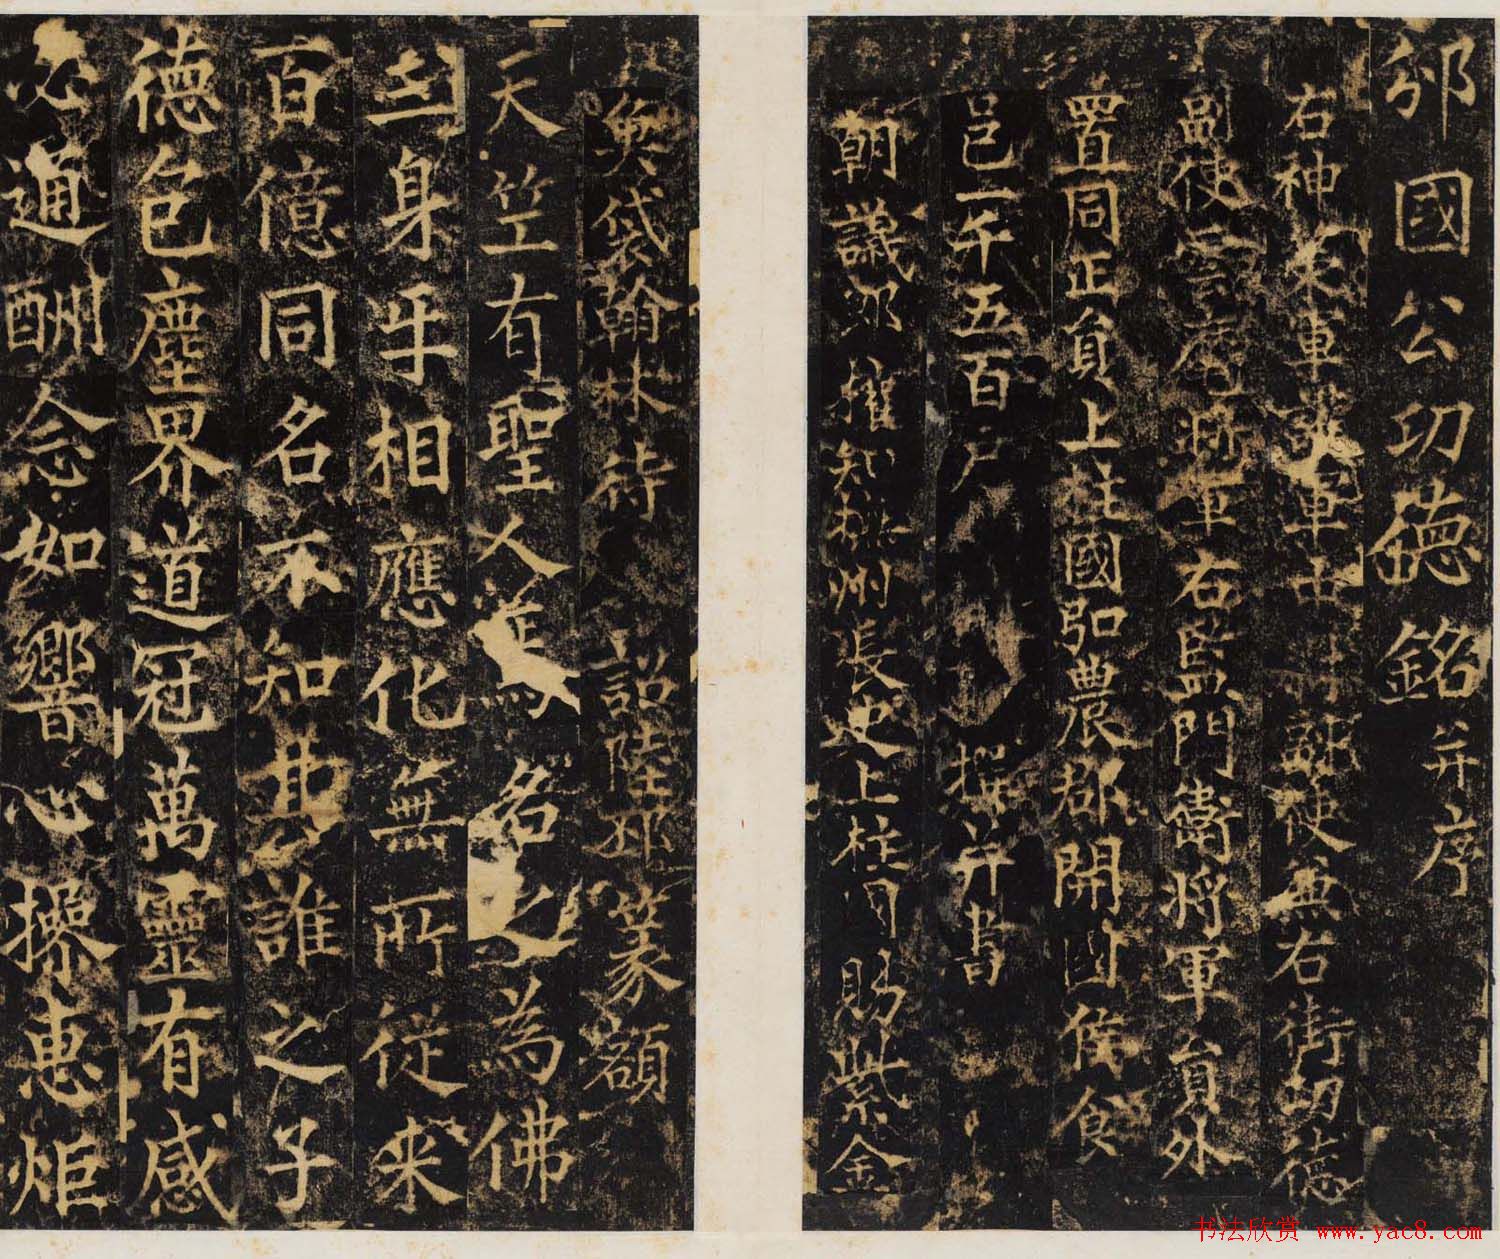 邠國公功德銘并序
右神策軍護軍中尉副使兼右街功德
副使雲麾將軍右監門衛將軍員外
置同正員上柱國弘農郡開國侯食
邑一千五百戶 撰并書
朝議郎權知州長史上柱國賜紫金
魚袋翰林待 詔陸邳篆額
天竺有聖人焉名之為佛
身乎相應化無所從來
百億同名不知其誰之子
德包塵界道冠萬靈有感
必通酬念如響心操惠炬
书法欣赏 www.yac8.com